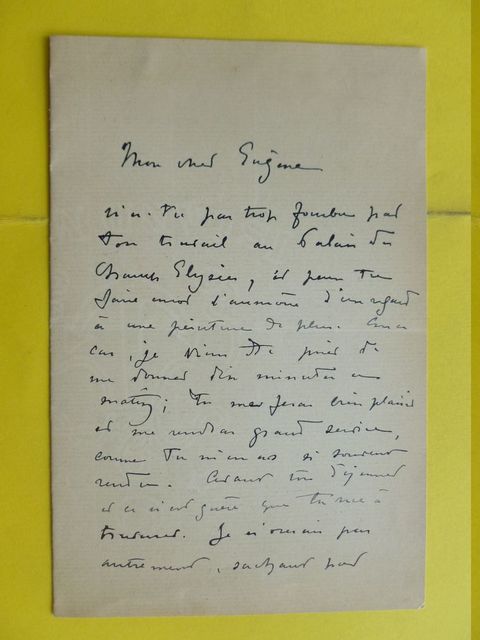 Mon cher Eugène
n'es-tu pas trop fourbu par
ton travail au Palais des
Champs Elysées, et peux-tu
faire encor l'aumône d'un regard
à une peinture de plus. En ce
cas, je viens te prier de
me donner dix minutes ce
matin; tu me feras bien plaisir
et me rendras grand service,
comme tu m'en as si souvent
rendu. avant ton déjeuner
et ce n'est guère que
traverser. Je n'aurais pas
autrement, sachant par